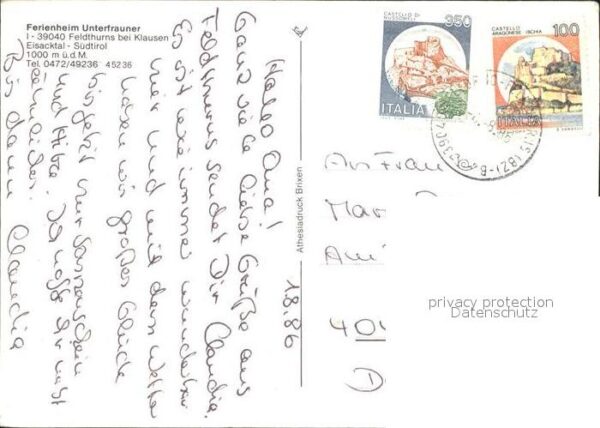 Ferienheim Unterfrauner
I - 39040 Feldthurns bei Klausen
Eisacktal - Südtirol
1000 m ü.d.M.
Tel. 0472/49236 45236
1.8.86
Hallo Oma!
Ganz viele liebe Grüße aus
Feldthurns sendet Dir Claudia.
Es ist wie immer wunderbar
hier und mit dem Wetter
haben wir großes Glück
bis jetzt nur Sonnenschein
und Hitze. Ich hoffe Ihr habt
ähnliches.
Bis dann Claudia
Athesiadruck Brixen
CASTELLO DI
MUSSOMELI
350
ITALIA
CASTELLO
ARAGONESE ISCHIA
100
ITALIA
39040
(BZ)
An Frau
Mar
40
D
privacy protection
Datenschutz